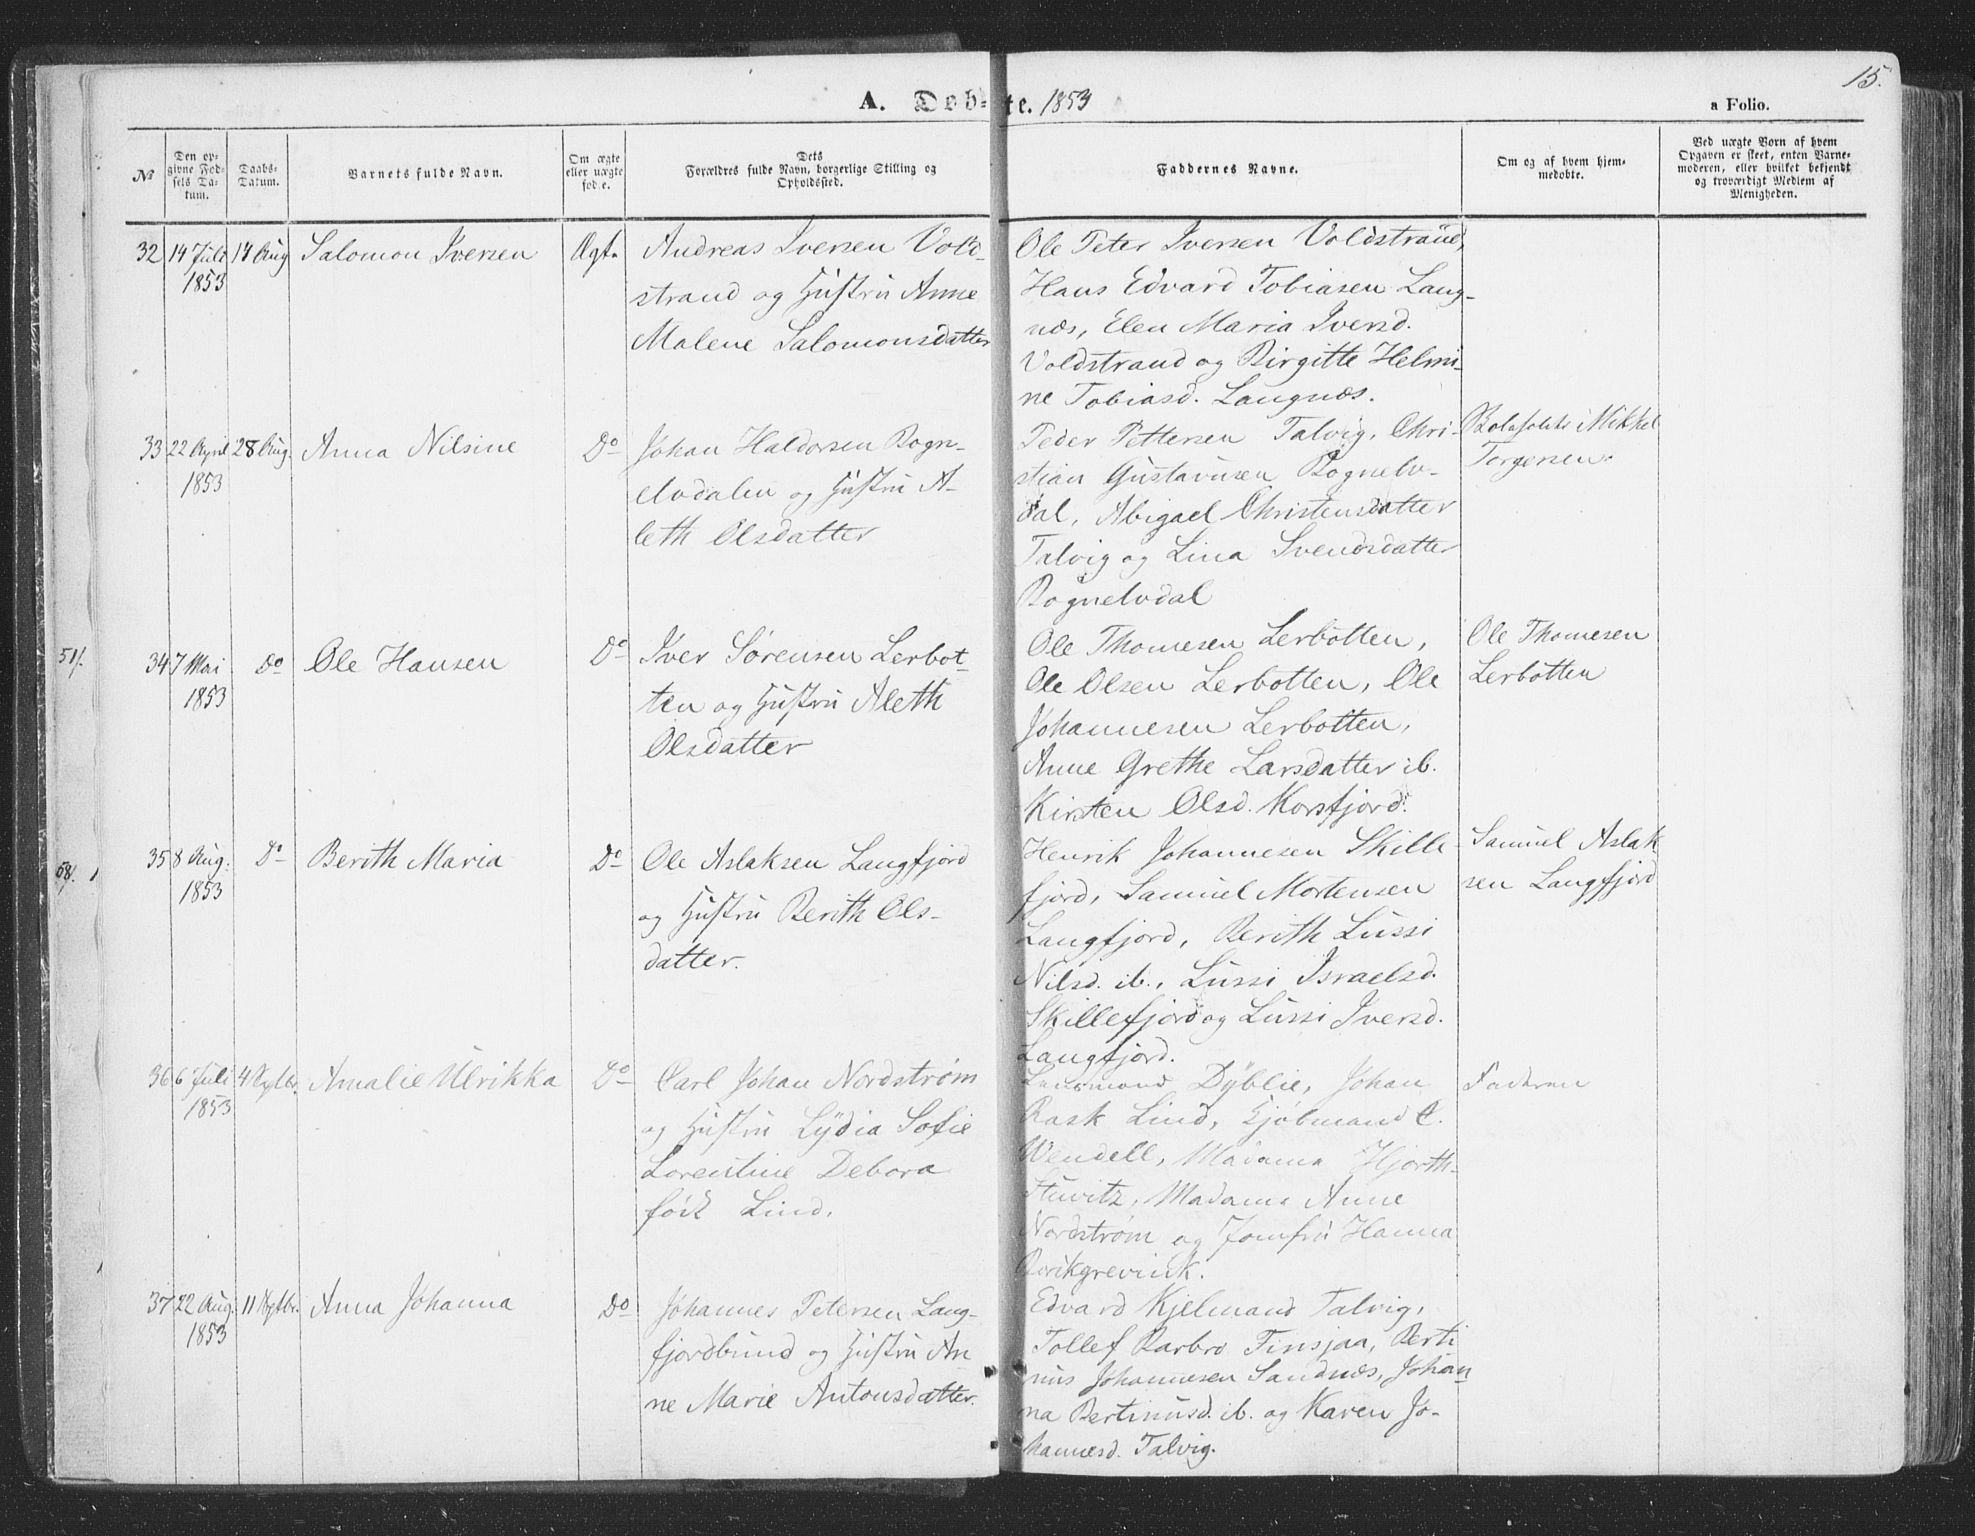 15.
A. Døb-te. 1853
a Folio.
No
Den op-
givne Fød-
sels Da-
tum.
Daabs-
Datum.
Barnets fulde Navn.
Om ægte
eller uægte
fød.e.
Dets
Forældres fulde Navn, borgerlige Stilling og
Opholdssted.
Faddernes Navne.
Om og af hvem hjem-
medøbte.
Ved uægte Børn af hvem
Opgaven er skeet, enten Barne-
moderen, eller hvilket bekjendt
og troværdigt Medlem af
Menigheden.
32 14 Juli 14 Aug Salomon Iversen Ægt.
1853
Andreas Iversen Vold-
strand og Hustru Anne
Malene Salomonsdatter
Ole Peter Iversen Voldstrand,
Hans Edvard Tobiasen Lang-
næs, Elen Maria Iversd.
Voldstrand og Birgitte Helmi-
ne Tobiasd. Langnæs.
33 22 April 28 Aug. Anna Nilsine Do
1853
Johan Haldorsen Rogn-
elvdalen og Hustru A-
leth Olsdatter
Peder Pettersen Talvig, Chri-
stian Gustavusen Rognelv-
dal, Abigael Christensdatter
Talvig og Lina Svendsdatter
Rognelvdal
Mikkel
Torgersen.
51/.
34 7 Mai Do Ole Hansen Do
1853
Iver Sørensen Lerbot-
ten og Hustru Aleth
Olsdatter
Ole Thomesen Lerbotten,
Ole Olsen Lerbotten, Ole
Johannesen Lerbotten,
Anne Grethe Larsdatter ib.
Kirsten Olsd. Korsfjord.
Ole Thomesen
Lerbotten
58/.
35 8 Aug. Do Berith Maria Do
1853
Ole Aslaksen Langfjord
og Hustru Berith Ols-
datter.
Henrik Johannesen Skille-
fjord, Samuel Mortensen
Langfjord, Berith Lussi
Nilsd. ib., Lussi Israelsd.
Skillefjord og Lussi Iversd.
Langfjord.
Samuel Aslak
sen Langfjord
36 6 Juli 4 Septbr. Amalie Ulrikka Do
1853
Carl Johan Nordstrøm
og Hustru Lydia Sofie
Lorentine Debora
født Lind.
Lensmand Dyblie, Johan
Rask Lind, Kjøbmand C.
Wendell, Madama Hjorth-
Stuwitz, Madama Anne
Nordstrøm og Jomfru Hanna
Faderen
37 22 Aug. 11 Septbr. Anna Johanna Do
1853
Johannes Petersen Lang-
fjordbund og Hustru An-
ne Marie Antonsdatter.
Edvard Kjelmand Talvig,
Tollef Barbro Finsjaa, Berti
nus Johannesen Sandnæs, Johan-
na Bertinusd. ib. og Karen Jo-
hannesd. Talvig.